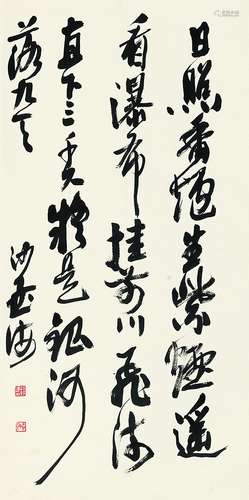 日照香爐生紫煙遥
看瀑布挂前川飛流
直下三千尺疑是銀河
落九天
沙孟海